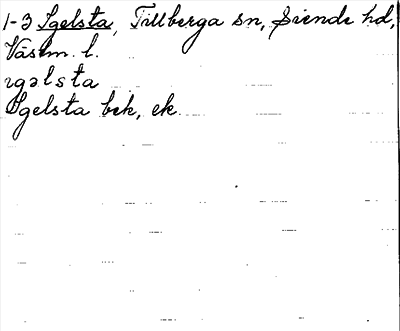 1-3 Igelsta, Tillberga sn, Siende hd,
Västm. l.
ıgəlsta
Igelsta bek, ek